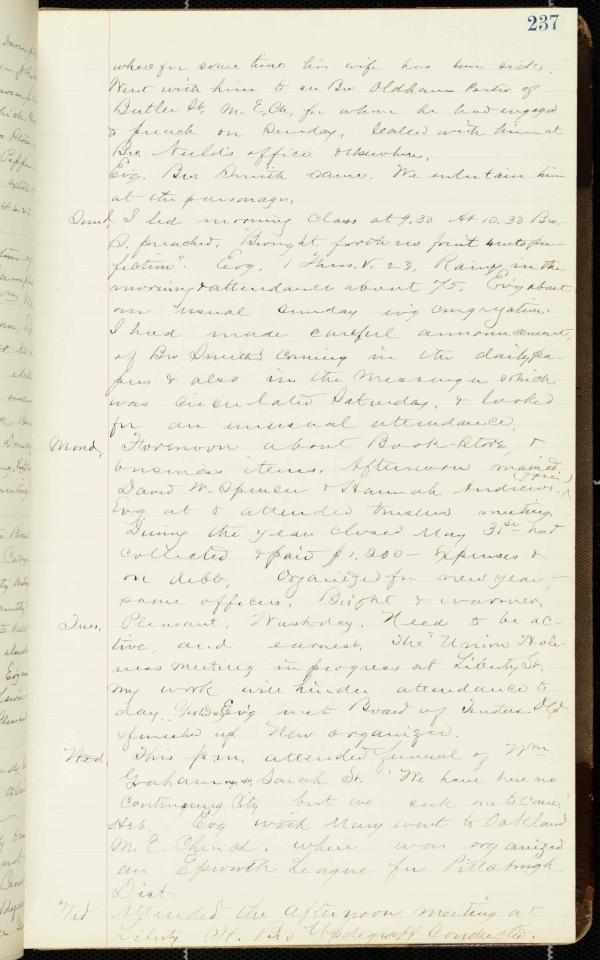 237
where for some time his wife has been sick.
Went with him to see Bro Oldham Pastor of
Butler St. M. E. Ch, for whom he had engaged
to preach on Sunday. Called with him at
Bro. office & elsewhere.
Evg. Bro Smith came. We entertain him
at the parsonage.
Sund, I led morning class at 9.30 At 10.30 Bro.
S. preached. "Brought forth no fruit unto per-
fection". Evg. 1 Thess. V. 23. Rainy in the
morning & attendance about 75. Ev'g about
our usual Sunday ev'g congregation.
I had made careful announcements,
of Bro Smith's coming in the daily pa-
pers & also in the Messenger which
was circulated Saturday, & looked
for an unusual attendance.
Mond, Forenoon about Book-Store, &
business items. Afternoon married
David W. Spencer & Hannah Andrews.
Evg at & attended trustees meeting
During the year closed May 31st had
collected & paid $1,200 - Expenses &
on debt. Organized for new year
same officers. Bright & warmer.
Tues, Pleasant. Washday. Need to be ac-
tive, and earnest. The "Union Holi-
ness Meeting in progress at Liberty St.
My work will hinder attendance to
day. Ev'g met Board of Trustees. Old
finished up New organized.
Wed. This p.m. attended funeral of Wm
Graham Sarah St. "We have here no
continuing City but we seek one to come"
Heb. Evg with Mary went to Oakland
M. E. Church, where was organized
an Epworth League for Pittsburgh
Dist.
Wed Attended the afternoon meeting at
Liberty St. Bro Updegraff Conducted.